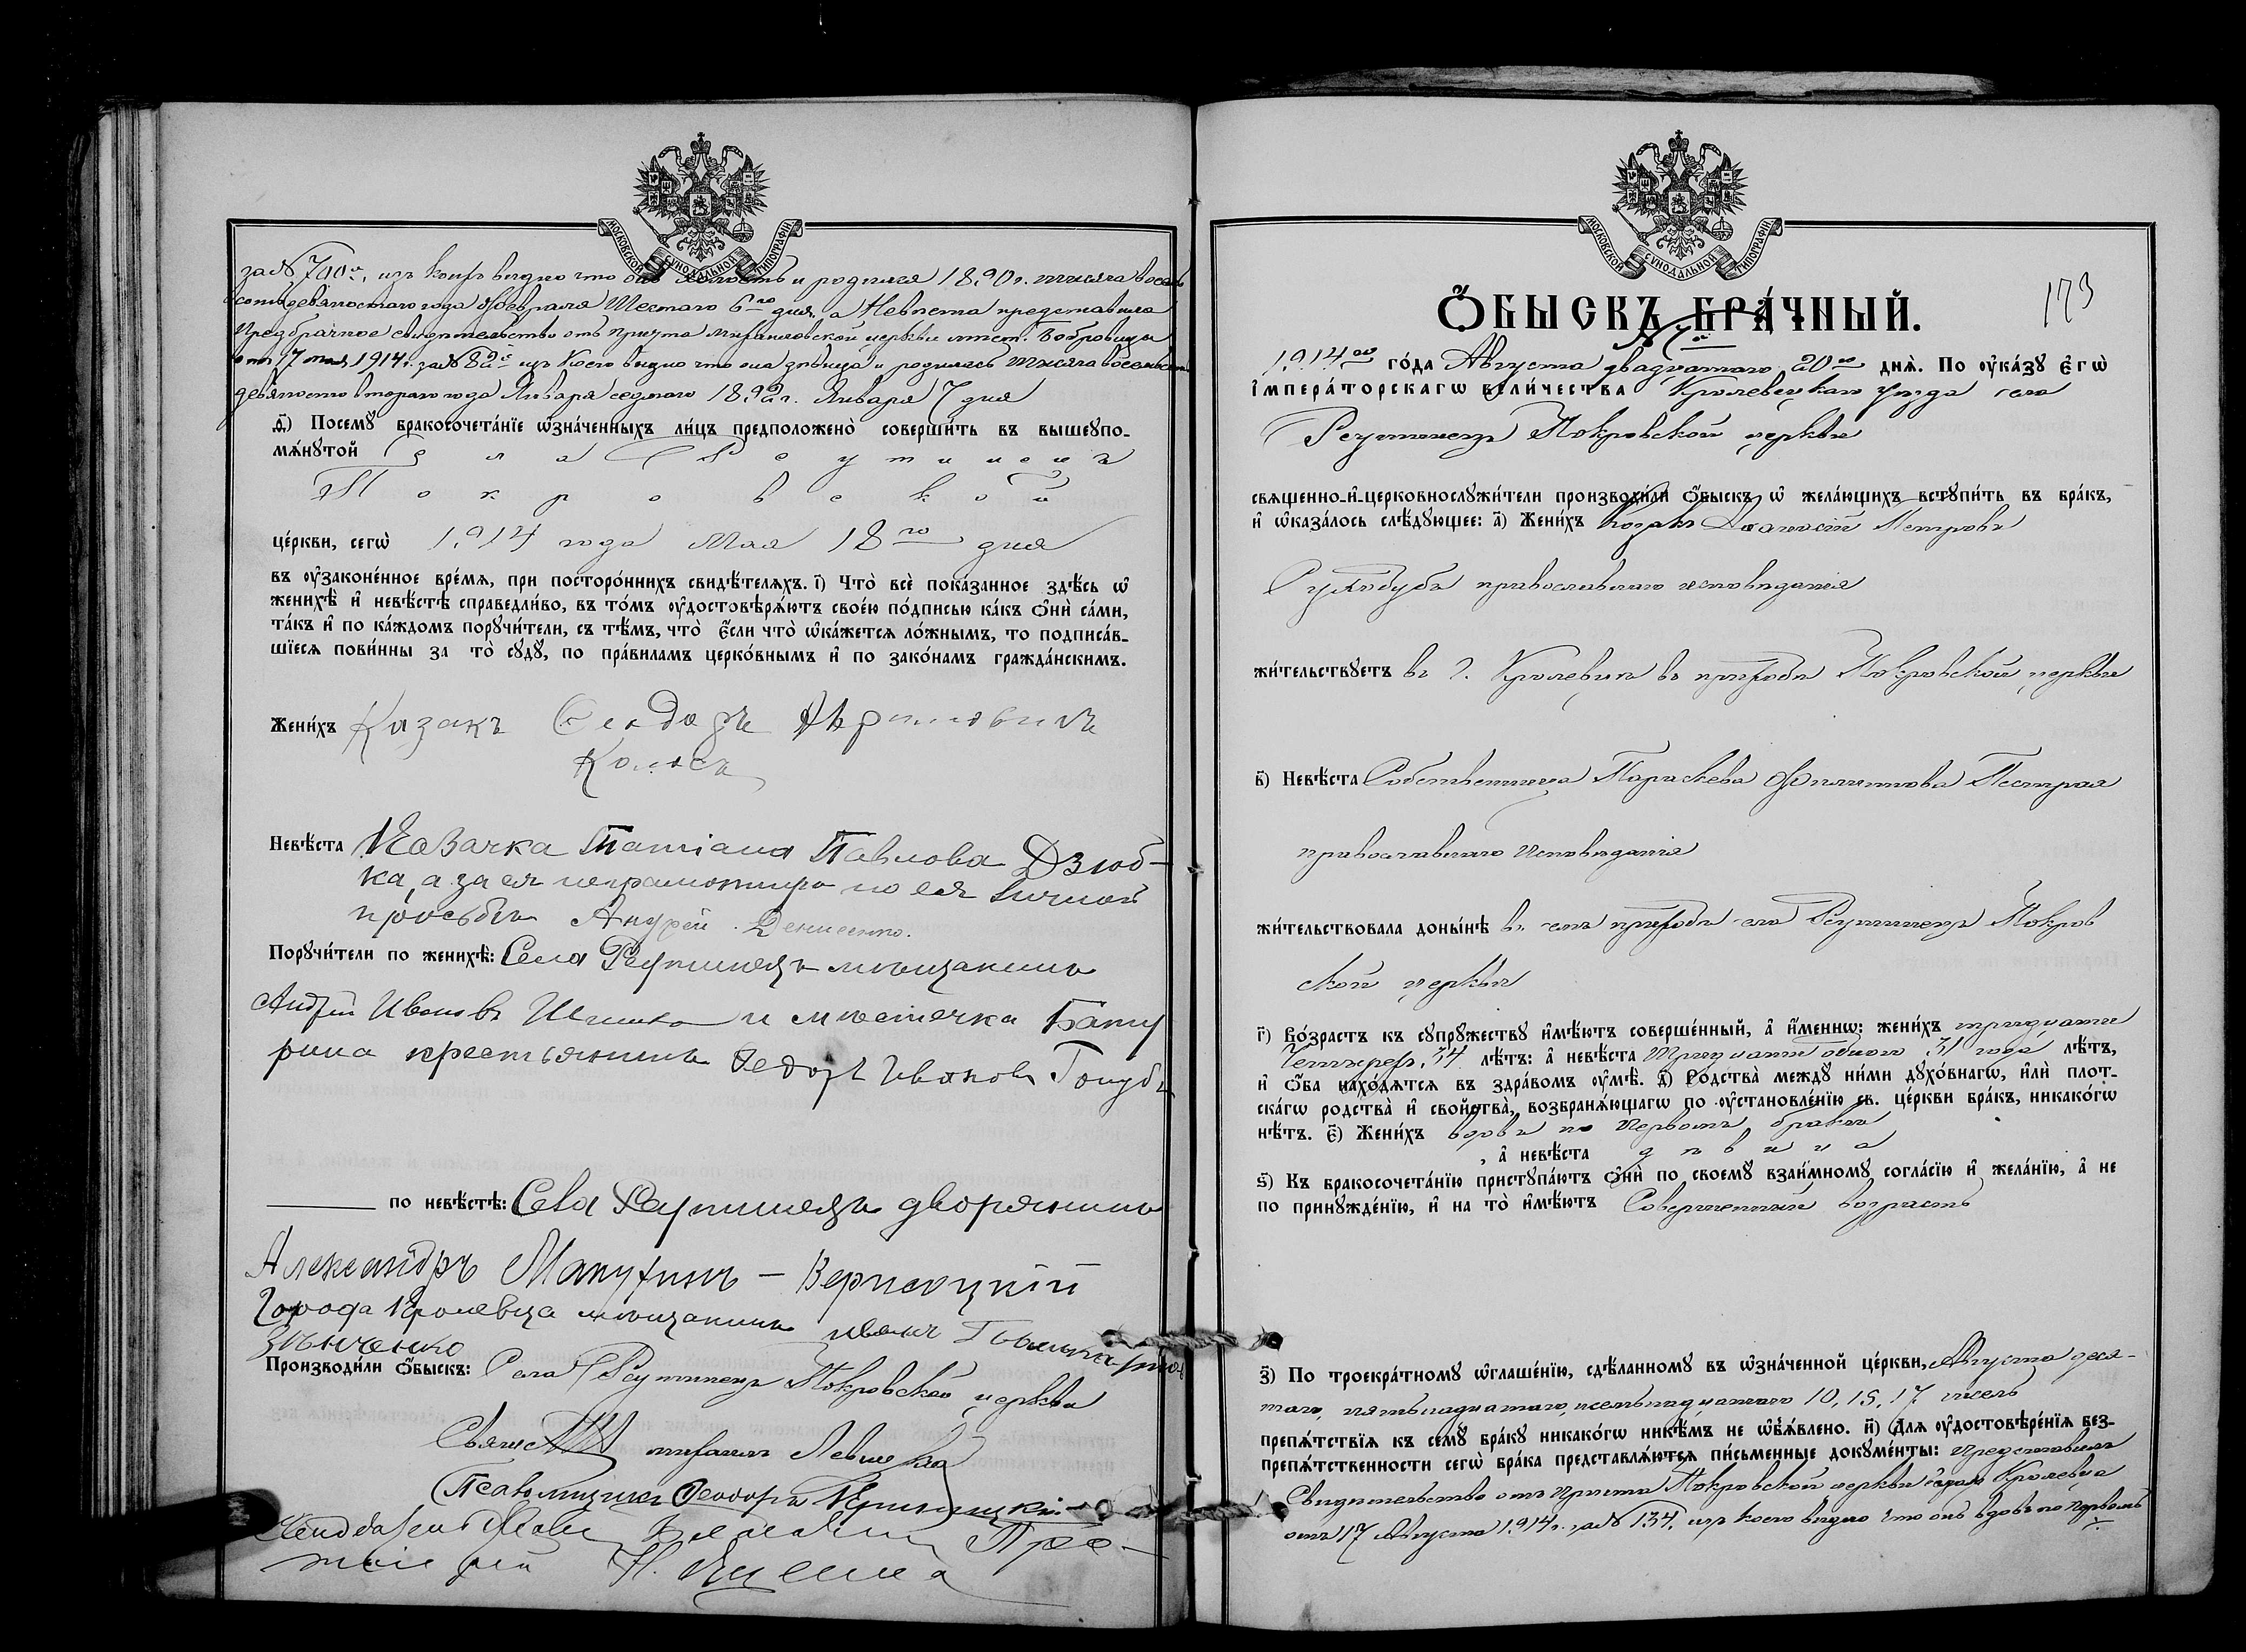 МОСКОВСКОЙ СѴНОДАЛЬНОЙ ТИПОГРАФІИ
за № 700, изъ коихъ видно что онъ холостъ и родился 1890 г. тысяча восемь
сотъ девяностаго года Февраля Шестаго 6го дня, а Невѣста представила
Предбрачное свидѣтельство отъ причта церкви мѣст. Бобровицы
отъ 17 мая 1914 г. за № 82 изъ Коего видно что она дѣвица и родилась Тысяча восемьсотъ
девяносто втораго года Января седьмого 1892 г. Января 7 дня
д҃) Посемꙋ бракосочета́нїе ѡ҆зна́ченныхъ ли́цъ предположено̀ соверши́ть въ вышеꙋпо-
мѧ́нꙋтой Села Реутинецъ
Покровской
це́ркви, сегѡ̀ 1914 года Мая 18го дня
въ ᲂу҆законе́нное вре́мѧ, при посторо́ннихъ свидѣ́телѧхъ. і҃) Что̀ всѐ пока́занное здѣ́сь ѡ҆
женихѣ̀ и҆ невѣ́стѣ справедли́во, въ то́мъ ᲂу҆достовѣрѧ́ютъ свое́ю по́дписью ка́къ ѻ҆нѝ са́ми,
та́къ и҆ по ка́ждомъ порꙋчи́тели, съ тѣ́мъ, что̀ є҆́сли что̀ ѡ҆ка́жетсѧ ло́жнымъ, то подписа́в-
шїесѧ пови́нны за то̀ сꙋдꙋ̀, по пра́виламъ церко́внымъ и҆ по зако́намъ гражда́нскимъ.
Жени́хъ Казакъ Феодоръ
Невѣ́ста Казачка Татіана Павлова Дзюб-
ка, а за ея неграмотную по ея личной
просьбѣ Андрей Денисенко.
Порꙋчи́тели по женихѣ̀: Села Реутинецъ мѣщанинъ
Андрей Ивановъ и мѣстечка Бату
рина крестьянинъ Федоръ Ивановъ Голубъ
по невѣ́стѣ: Села Реутинецъ дворянинъ
Александръ
Города Кролевца мѣщанинъ Иванъ
Производи́ли ѻ҆́быскъ: Села Реутинецъ Покровской церкви
Свящ. Левицкій
Псаломщикъ Феодоръ
МОСКОВСКОЙ СѴНОДАЛЬНОЙ ТИПОГРАФІИ
173
Ѻ҆́БЫСКЪ БРА́ЧНЫЙ.
№
1914го го́да Августа двадцатаго 20го днѧ̀. По ᲂу҆ка́зꙋ є҆гѡ̀
і҆мпера́торскагѡ вели́чества Кролевецкаго уѣзда села
Реутинецъ Покровской церкви
сващенно-и҆-церковнослꙋжи́тели производи́ли ѻ҆́быскъ ѡ҆ жела́ющихъ встꙋпи́ть въ бра́къ,
и҆ ѡ҆каза́лось слѣ́дꙋющее: а҃) Жени́хъ Козакъ Петровъ
православнаго исповѣданія
жи́тельствꙋетъ въ г. Кролевцѣ въ приходѣ Покровской церкви
в҃) Невѣ́ста Собственница Параскева Филиппова Пестрая
православнаго исповѣданія
жи́тельствовала доны́нѣ въ семъ приходѣ села Реутинецъ Покров
ской церкви
г҃) Во́зрастъ къ сꙋпрꙋ́жествꙋ и҆мѣ́ютъ соверше́нный, а҆ и҆́меннѡ: жени́хъ тридцати
Четырехъ 34 лѣ́тъ: а҆ невѣ́ста Тридцати одного 31 года лѣ́тъ,
и҆ ѻ҆́ба нахо́дѧтсѧ въ здра́вомъ ᲂу҆мѣ̀. д҃) Ро́дства̀ междꙋ ни́ми дꙋхо́внагѡ, и҆лѝ плот-
ска́гѡ родства̀ и҆ свойства̀, возбранѧ́ющагѡ по ᲂу҆становле́нїю св. це́ркви бра́къ, никако́гѡ
нѣ́тъ. є҃) Жени́хъ вдовъ по Первомъ бракѣ
, а҆ невѣ́ста дѣвица
ѕ҃) Къ бракосочета́нїю пристꙋпа́ютъ ѻ҆нѝ по своемꙋ̀ взаи́мномꙋ согла́сїю и҆ жела́нїю, а҆ не
по принꙋжде́нїю, и҆ на то̀ и҆мѣ́ютъ Совершенный возрастъ
з҃) По троекра́тномꙋ ѡ҆глаше́нїю, сдѣ́ланномꙋ въ ѡ҆зна́ченной це́ркви, Августа деся-
таго, пятьнадцатаго, семьнадцатаго 10, 15, 17 чиселъ
препѧ́тствїѧ къ семꙋ̀ бра́кꙋ никако́гѡ никѣ́мъ не ѡ҆б̾ѧ́влено. и҃) Длѧ ᲂу҆достовѣре́нїѧ без-
препѧ́тственности сегѡ̀ бра́ка представлѧ́ютсѧ пи́сьменные докꙋме́нты: Представилъ
Свидѣтельство отъ причта Покровской церкви города Кролевца
отъ 17 Августа 1914 г. за № 134, изъ коего видно что онъ вдовъ по первомъ